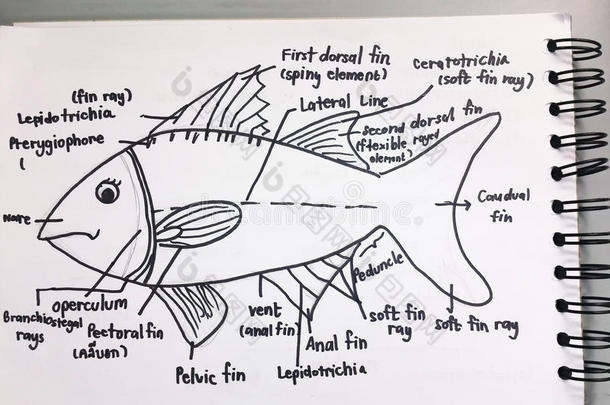 First dorsal fin
(spiny element)
Ceratotrichia
(soft fin ray)
(fin ray)
Lepidotrichia
Lateral Line
second dorsal fin
(flexible rayed
element)
Pterygiophore
(
Nare
Caudual
fin
Peduncle
operculum
Branchiostegal
rays
Pectoral fin
(คลีบอก)
vent
(anal fin)
soft fin
ray
soft fin ray
Anal fin
Pelvic fin
Lepidotrichia